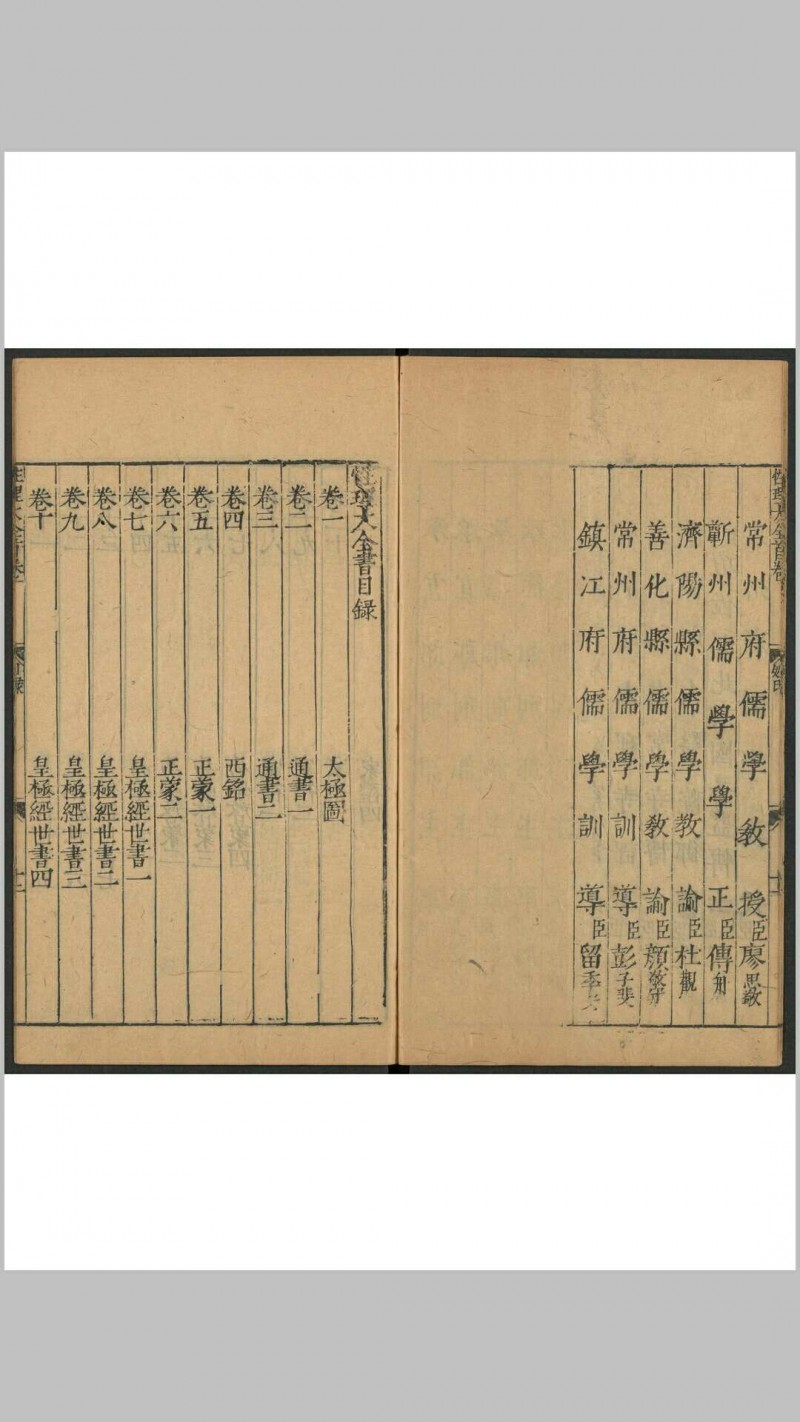 常州府儒學教授臣廖思敬
蘄州儒學學正臣傅舟
濟陽縣儒學教諭臣杜觀
善化縣儒學教諭臣顏敬守
常州府儒學訓導臣彭子斐
鎮江府儒學訓導臣留季安
性理大全書目録
卷一 太極圖
卷二 通書一
卷三 通書二
卷四 西銘
卷五 正蒙一
卷六 正蒙二
卷七 皇極經世書一
卷八 皇極經世書二
卷九 皇極經世書三
卷十 皇極經世書四